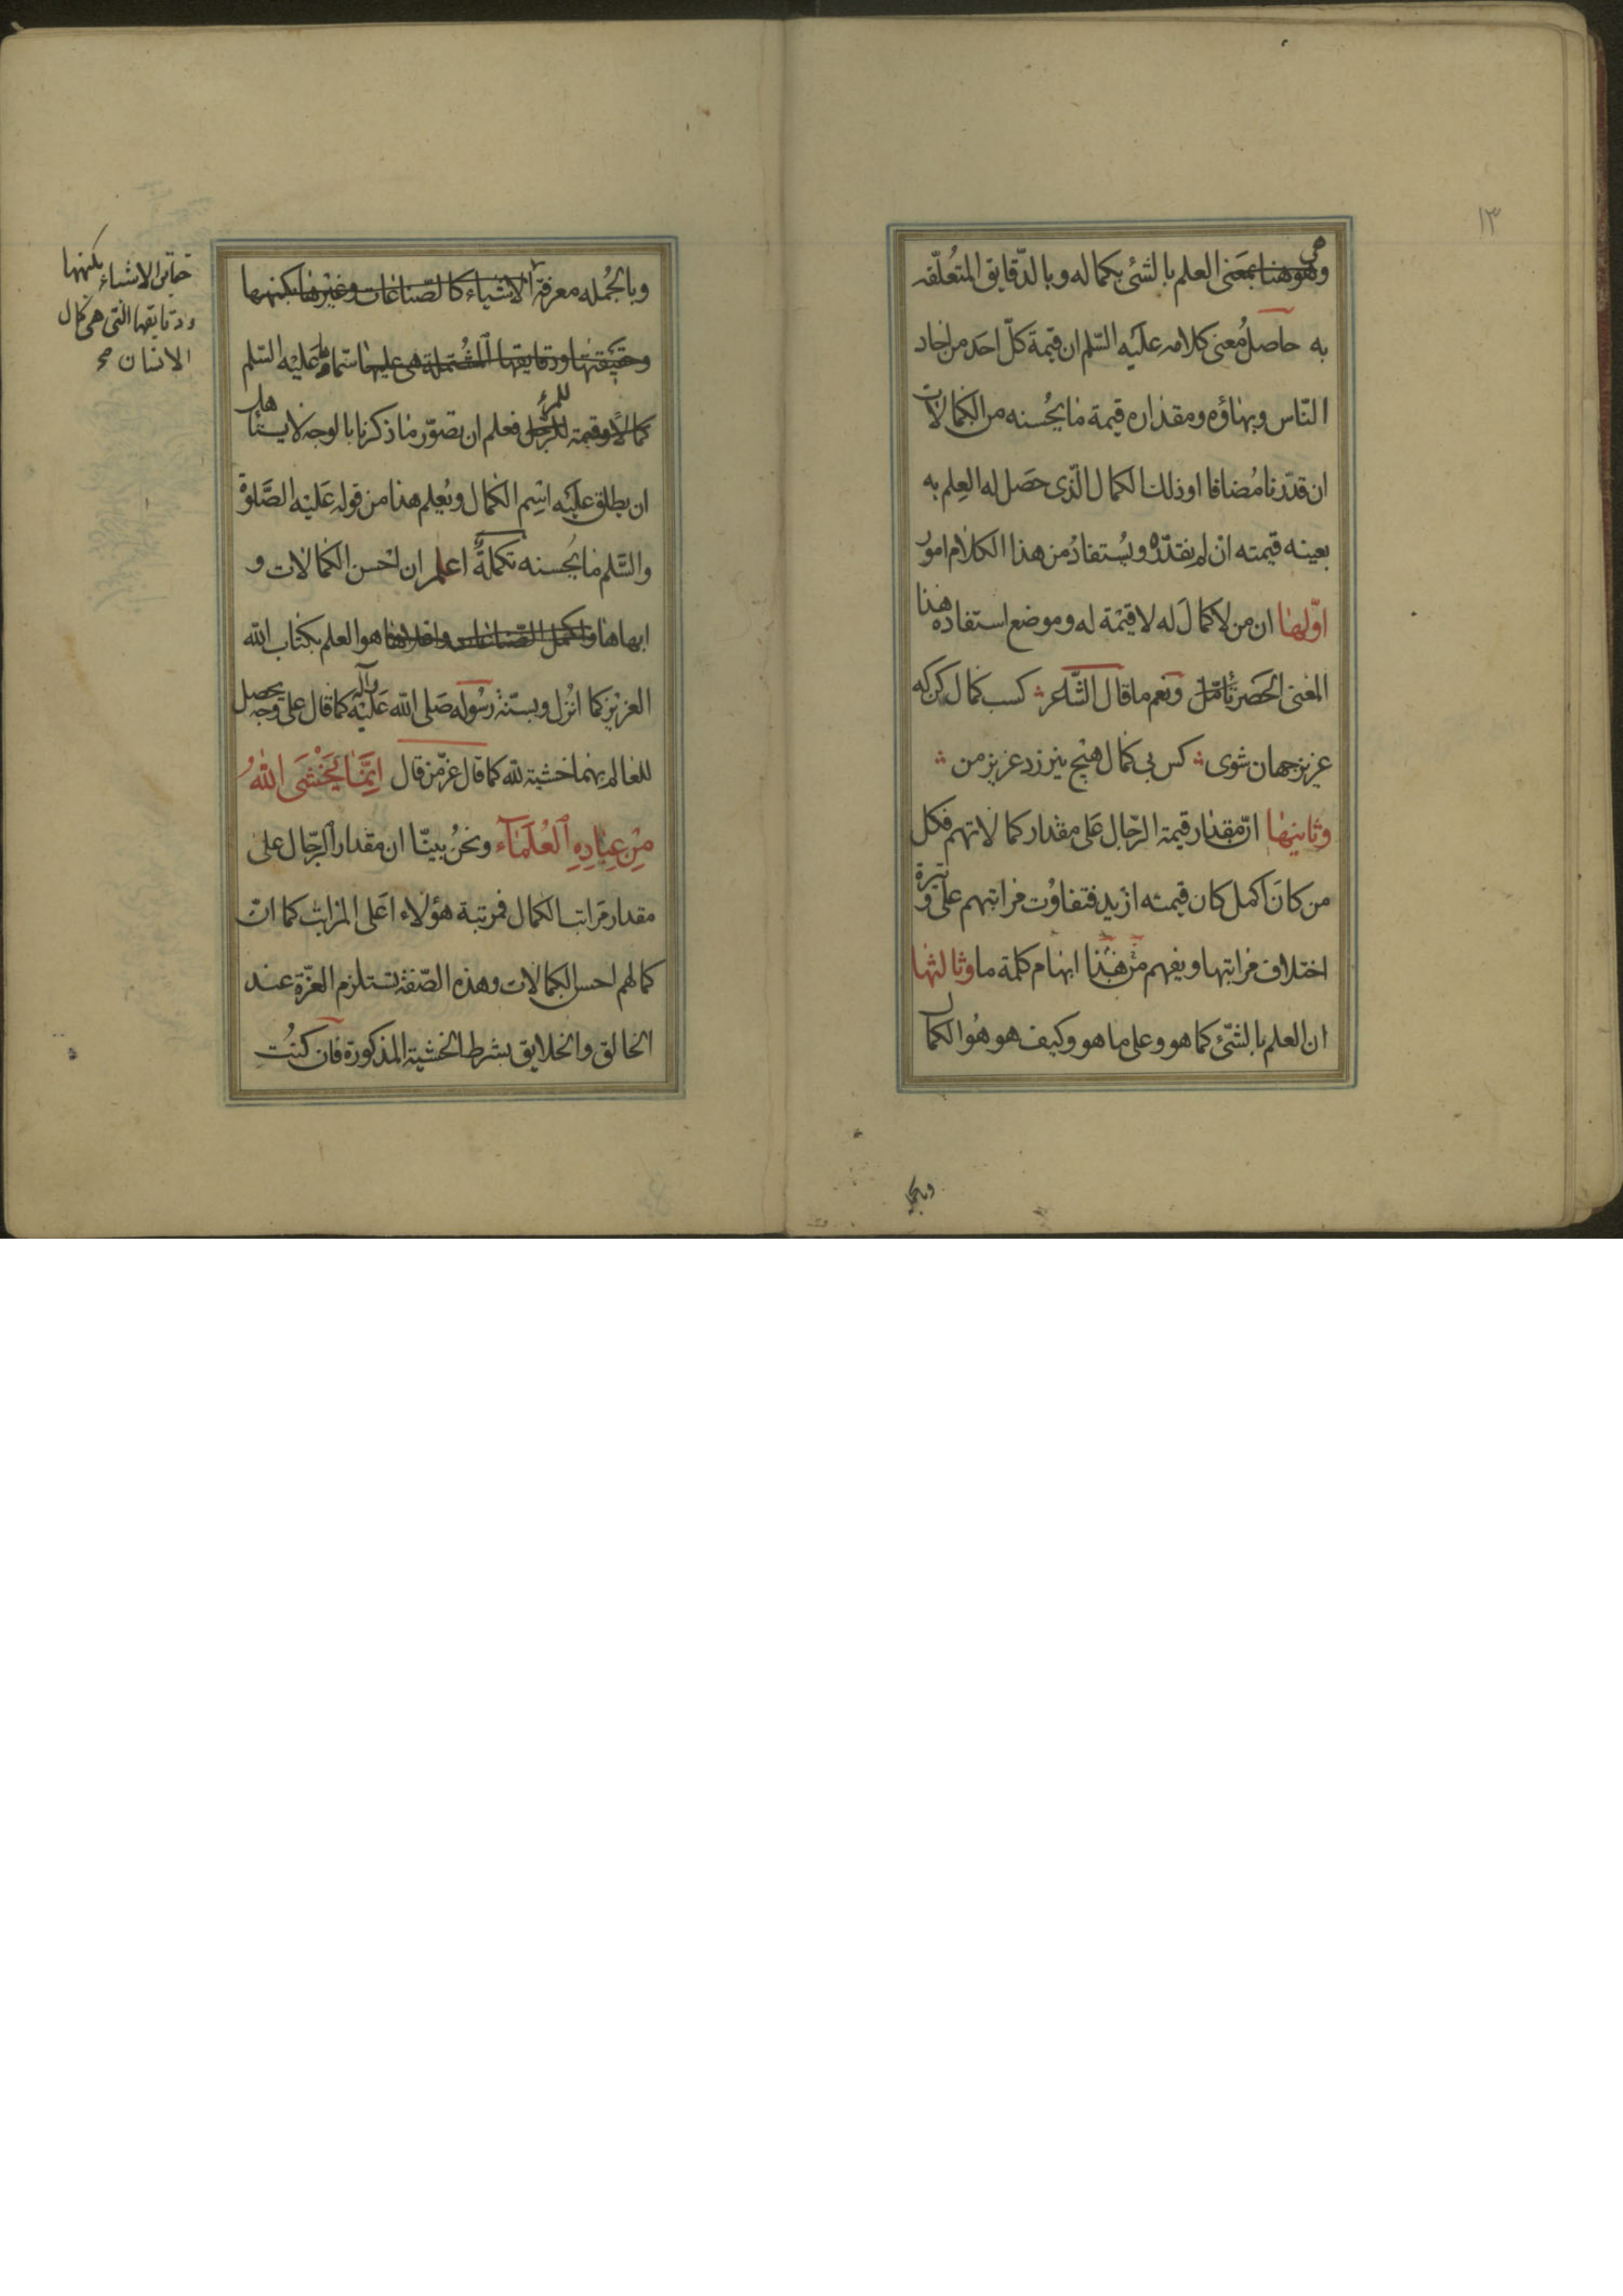 ١٣
وهو هنا بمعنى العلم بالشئ بكماله وبالدّقايق المتعلّقه
هى
به حاصل معنى كلامه عليه السّلم ان قيمة كلّ احد من احاد
النّاس وبهاؤه ومقداره قيمة ما يحسنه من الكمالات
ان قدّرنا مضافا او ذلك الكمال الّذى حصل له العلم به
بعينه قيمته ان لم نقدّره ويستفاد من هذا الكلام امور
اوّلها ان من لا كمال له لا قيمة له وموضع استفاده هذا
المعنى الحصر تأمّل ونعم ما قال الشّاعر كسب كمال كن كه
عزيز جهان شوى كس بى كمال هيچ نيرزد عزيز من
وثانيها انّ مقدار قيمة الرّجال على مقدار كمالاتهم فكل
من كان اكمل كان قيمته ازيد فتفاوت مراتبهم على وتيرة
اختلاف مراتبها ويفهم من هذا ابهام كلمة ما وثالثها
ان العلم بالشّئ كما هو وعلى ما هو وكيف هو هو الكمال
وبالجمله
وبالجمله معرفة الاشياء كالصّناعات وغيرها بكنهها
حقايق الاشياء بكنهها
ودقايقها التى هى كمال
الانسان صح
وحقيقتها ودقايقها المشتملة هى عليها سمّاه عليه السّلم
كمالا وقيمة للرّجل فعلم ان تصوّر ما ذكرنا بالوجه لا يستاهل
للمرء
ان يطلق عليه اسم الكمال ويعلم هذا من قوله عليه الصّلوة
والسّلم ما يحسنه تكملة اعلم ان احسن الكمالات و
ابهاها واكمل الصّناعات واعلاها هو العلم بكتاب الله
العزيز كما انزل وبسنّة رسوله صلى الله عليه وآله كما قال على وجه يحصل
للعالم بهما خشية لله كما قال عزّ من قال انّما يخشى الله
من عباده العلماء ونحن بيّنا ان مقدار الرّجال على
مقدار مراتب الكمال فمرتبة هؤلاء اعلى المراتب كما انّ
كمالهم احسن الكمالات وهذه الصّفة تستلزم العزّة عند
الخالق والخلايق بشرط الخشية المذكورة فان كنت